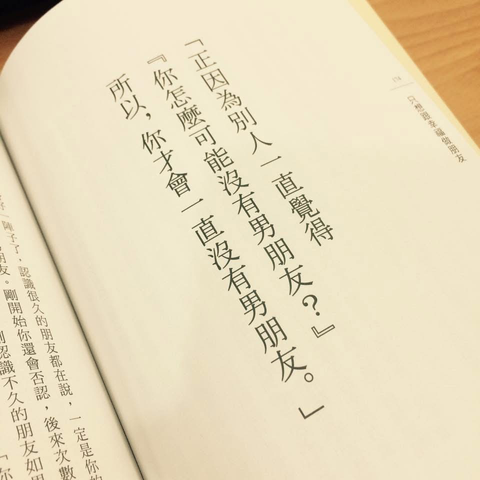 只想跟幸福做朋友
「正因為別人一直覺得
『你怎麼可能沒有男朋友？』
所以，你才會一直沒有男朋友。」
陣子了，認識很久的朋友都在說，一定是你的
朋友。剛開始你還會否認，後來次數
認識不久的朋友如果
「你